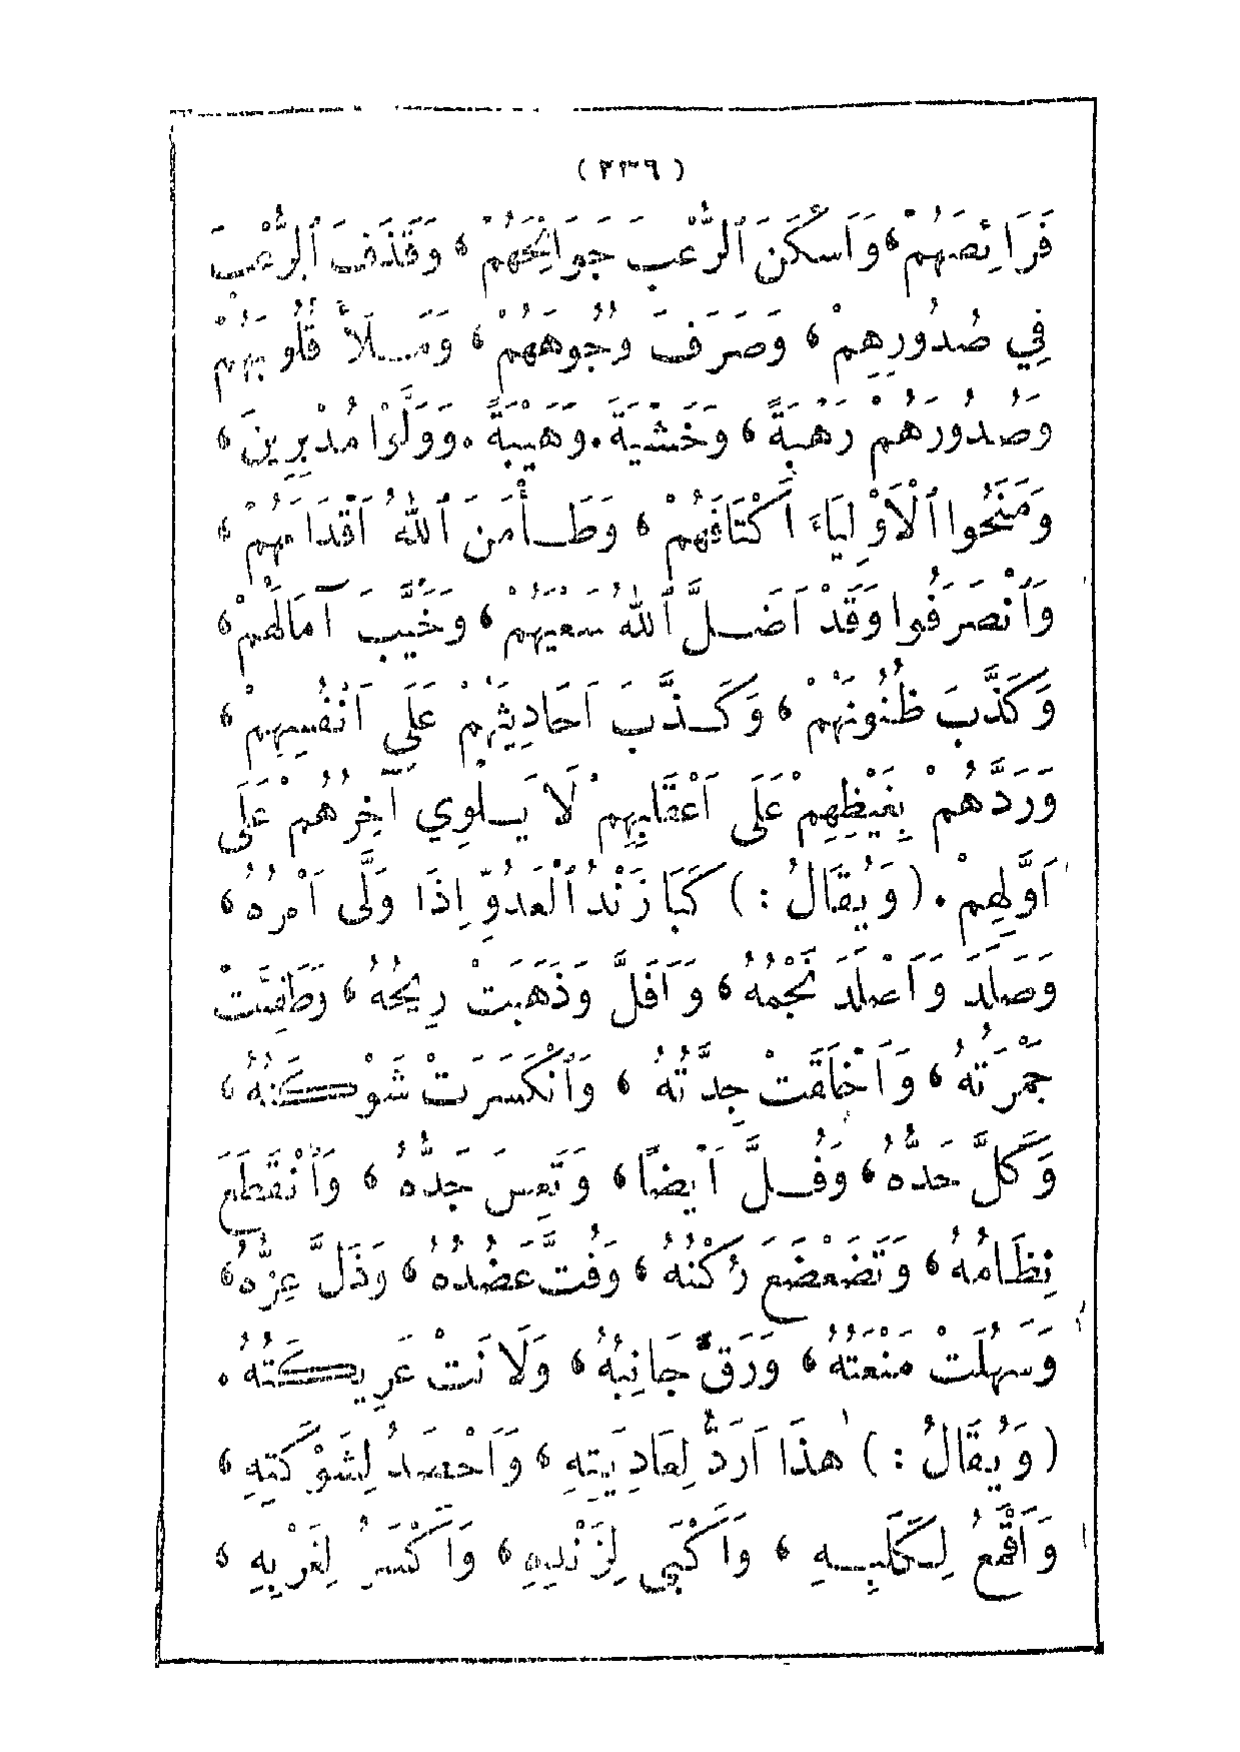 (٢٣٩)
فَرَائِصَهُمْ، وَأَسْكَنَ ٱلرُّعْبَ جَوَانِحَهُمْ، وَقَذَفَ ٱلرُّعْبَ
فِي صُدُورِهِمْ، وَصَرَفَ وُجُوهَهُمْ، وَمَلَأَ قُلُوبَهُمْ
وَصُدُورَهُمْ رَهْبَةً، وَخَشْيَةً. وَهَيْبَةً. وَوَلَّوْا مُدْبِرِينَ،
وَمَنَحُوا ٱلْأَوْلِيَاءَ أَكْتَافَهُمْ، وَطَأْمَنَ ٱللهُ أَقْدَامَهُمْ،
وَٱنْصَرَفُوا وَقَدْ أَضَلَّ ٱللهُ سَعْيَهُمْ، وَخَيَّبَ آمَالَهُمْ،
وَكَذَّبَ ظُنُونَهُمْ، وَكَذَّبَ أَحَادِيثَهُمْ عَلَى أَنْفُسِهِمْ،
وَرَدَّهُمْ بِغَيْظِهِمْ عَلَى أَعْقَابِهِمْ لَا يَلْوِي آخِرُهُمْ عَلَى
أَوَّلِهِمْ. (وَيُقَالُ:) كَبَا زَنْدُ ٱلْعَدُوِّ إِذَا وَلَّى أَمْرُهُ،
وَصَلَدَ وَأَصْلَدَ نَجْمُهُ، وَأَفَلَ وَذَهَبَتْ رِيحُهُ، وَطَفِئَتْ
جَمْرَتُهُ، وَأَخْلَقَتْ جِدَّتُهُ، وَٱنْكَسَرَتْ شَوْكَتُهُ،
وَكَلَّ حَدُّهُ، وَفُلَّ أَيْضًا، وَتَعِسَ جَدُّهُ، وَٱنْقَطَعَ
نِظَامُهُ، وَتَضَعْضَعَ رُكْنُهُ، وَفُتَّ عَضُدُهُ، وَذَلَّ عِزُّهُ،
وَسَهُلَتْ مَنْعَتُهُ، وَرَقَّ جَانِبُهُ، وَلَانَتْ عَرِيكَتُهُ.
(وَيُقَالُ:) هٰذَا أَرَدُّ لِعَادِيَتِهِ، وَأَحْصَدُ لِشَوْكَتِهِ،
وَأَقْمَعُ لِكَلَبِهِ، وَأَكْبَى لِزَنْدِهِ، وَأَكْسَرُ لِغَرْبِهِ،